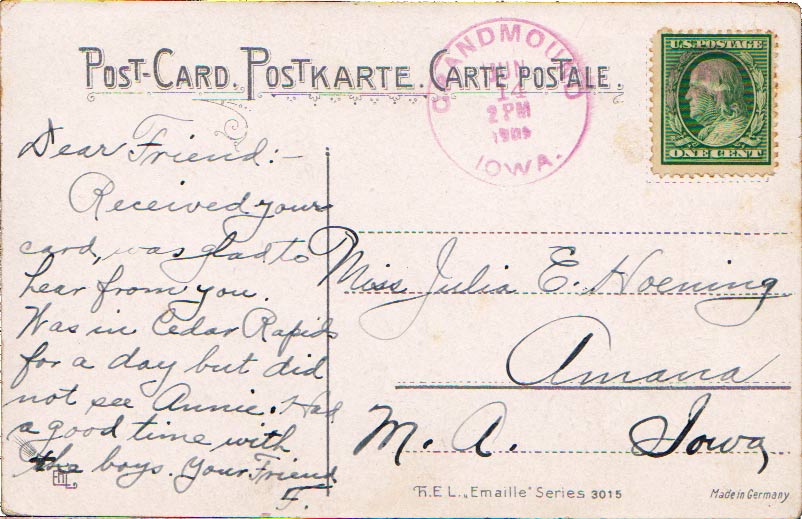 POST-CARD. POSTKARTE. CARTE POSTALE.
GRANDMOUND
JUN
14
2 PM
1909
IOWA.
U.S. POSTAGE
ONE CENT
Dear Friend:-
Received your
card, was glad to
hear from you.
Was in Cedar Rapids
for a day but did
not see Annie. Had
a good time with
the boys. Your Friend
F.
Miss Julia E. Hoening
Amana
M. A. Iowa
H.E.L. „Emaille" Series 3015
Made in Germany